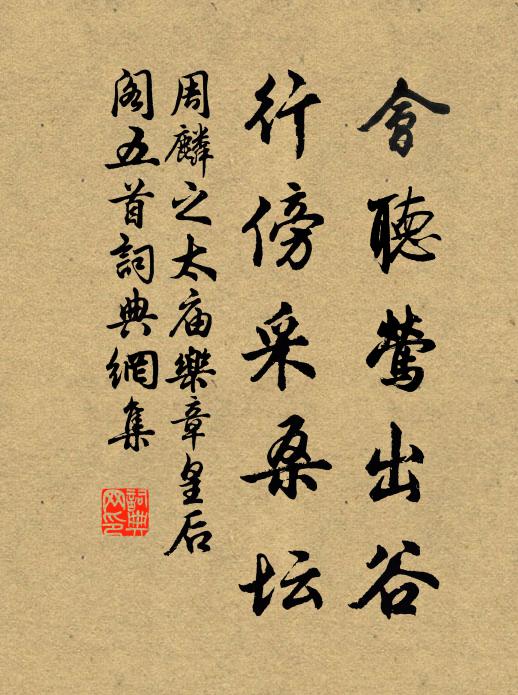 會聽鶯出谷
行傍采桑坛
周麟之太庙樂章皇后
阁五首詞典網集
詞典網印